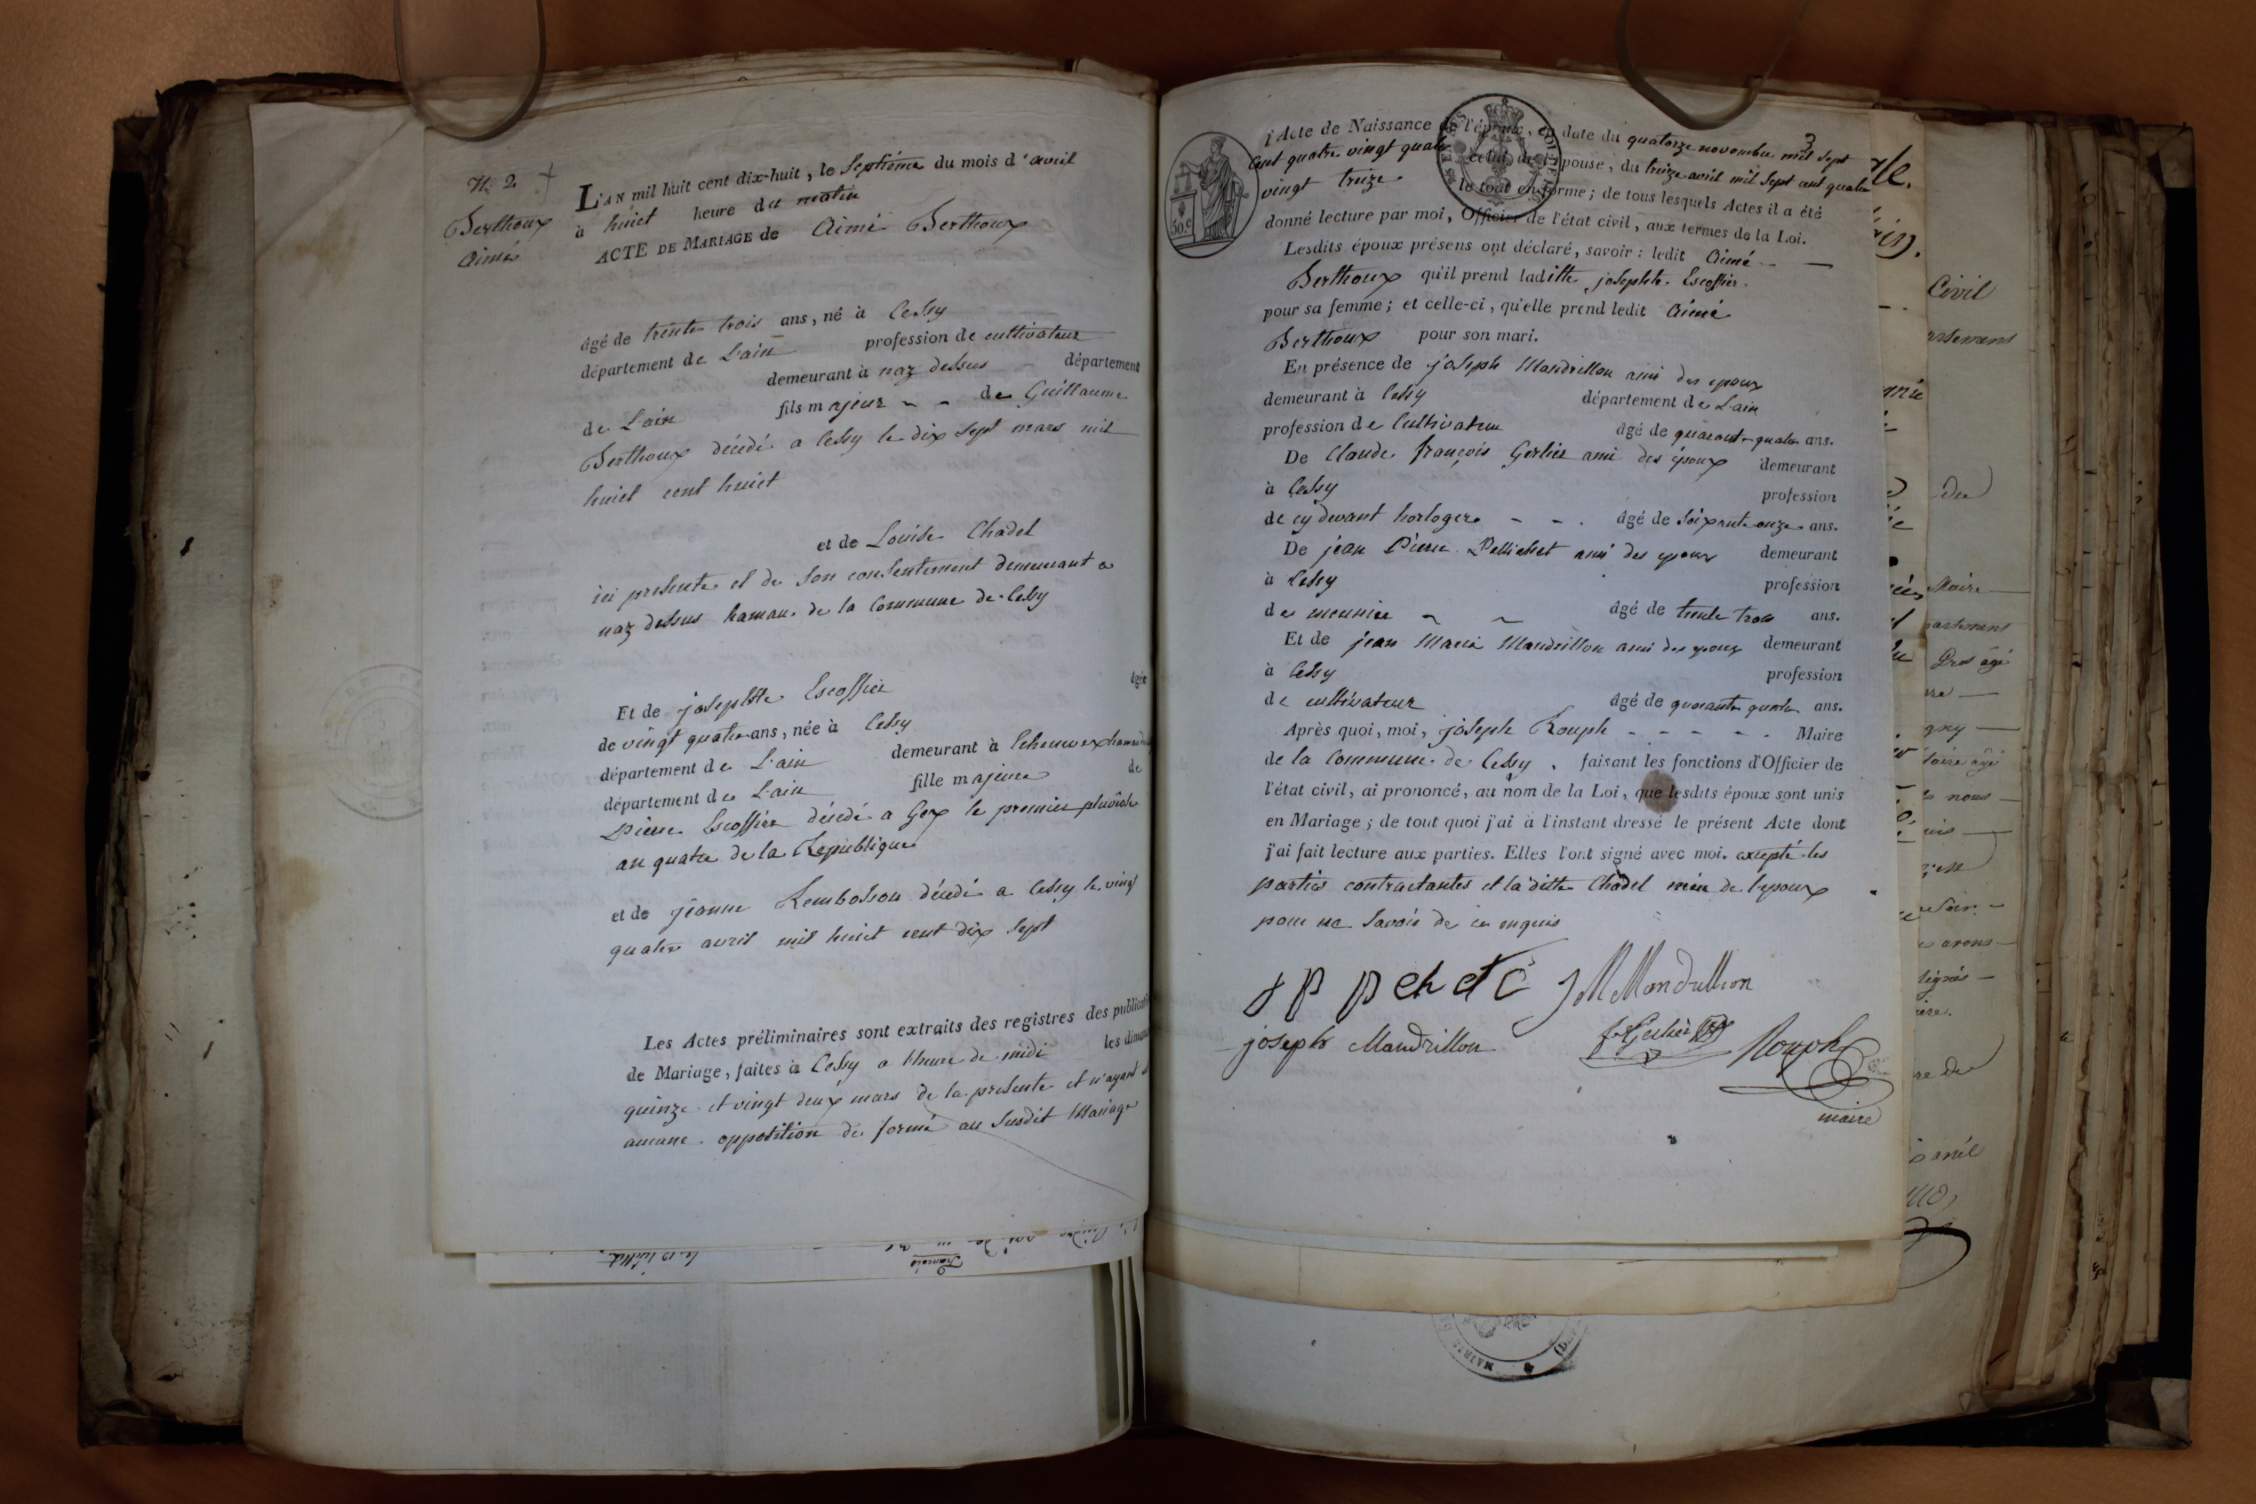 N. 2
Berthoux
Aimé
L'AN mil huit cent dix-huit, le Septième du mois d'avril
à huict heure du matin
ACTE DE MARIAGE de Aimé Berthoux
âgé de trente trois ans, né à Cessy
département de L'ain profession de cultivateur
demeurant à naz dessus département
de L'ain fils majeur de Guillaume
Berthoux décédé a Cessy le dix sept mars mil
huict cent huict
et de Louise Chadel
ici presente et de son consentement demeurant a
naz dessus hamau de la Commune de Cessy
Et de josephte Escoffier âgée
de vingt quatre ans, née à Cessy
département de L'ain demeurant à
département de L'ain fille majeure de
Pierre Escoffier décédé a Gex le premier pluviose
an quatre de la Republique
et de jeanne Rembosson décédé a Cessy le vingt
quatre avril mil huict cent dix sept
Les Actes préliminaires sont extraits des registres des
de Mariage, faites à Cessy a l'heure de midi les
quinze et vingt deux mars de la presente et n'ayant
aucune opposition de formé au Susdit Mariage
3
l'Acte de Naissance de l'époux, en date du quatorze novembre mil sept
cent quatre vingt quatre celui de l'épouse, du treize avril mil Sept cent quatre
vingt treize le tout en forme; de tous lesquels Actes il a été
donné lecture par moi, Officier de l'état civil, aux termes de la Loi.
Lesdits époux présens ont déclaré, savoir: ledit Aimé
Berthoux qu'il prend laditte josephte Escoffier
pour sa femme; et celle-ci, qu'elle prend ledit Aimé
Berthoux pour son mari.
En présence de joseph Mandrillon ami des epoux
demeurant à Cessy département de L'ain
profession de Cultivateur âgé de quarante quatre ans.
De Claude françois Gerlier ami des époux demeurant
à Cessy profession
de cy devant horloger âgé de Soixante onze ans.
De jean Pierre Pellichet ami des epoux demeurant
à Cessy profession
de meunier âgé de trente trois ans.
Et de jean Marie Mandrillon ami des epoux demeurant
à Cessy profession
de cultivateur âgé de quarante quatre ans.
Après quoi, moi, joseph Rouph Maire
de la Commune de Cessy, faisant les fonctions d'Officier de
l'état civil, ai prononcé, au nom de la Loi, que lesdits époux sont unis
en Mariage; de tout quoi j'ai à l'instant dressé le présent Acte dont
j'ai fait lecture aux parties. Elles l'ont signé avec moi. excepté les
parties contractantes et la ditte Chadel mère de l'epoux
pour ne Savoir de ce enquis
JMMandrillion
joseph Mandrillon
Rouph
maire
50.c
Civil
du
Maire